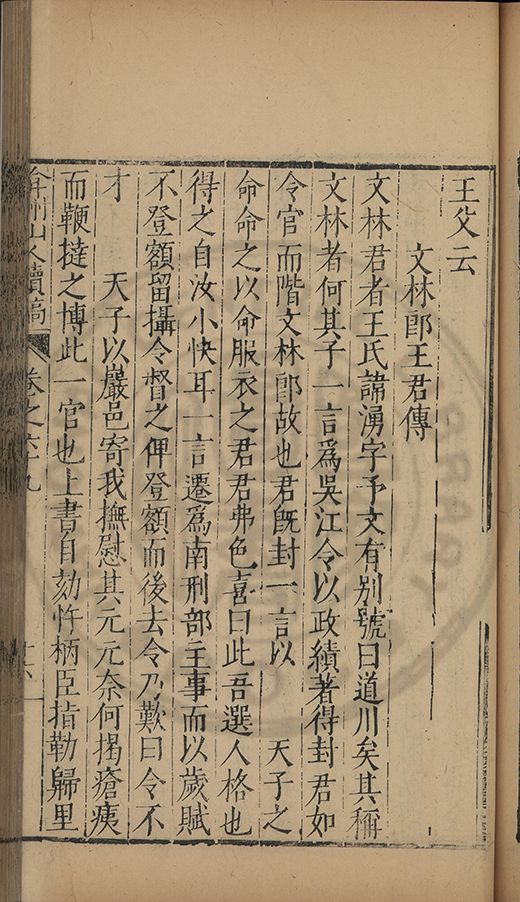 王父云
文林郎王君傳
文林君者王氏諱湧字予文有別號曰道川矣其稱
文林者何其子一言爲吳江令以政績著得封君如
令官而階文林郎故也君旣封一言以 天子之
命命之以命服衣之君君弗色喜曰此吾選人格也
得之自汝小快耳一言遷爲南刑部主事而以歲賦
不登額留攝令督之俾登額而後去令乃歎曰令不
才 天子以巖邑寄我撫慰其元元奈何揭瘡痍
而鞭撻之博此一官也上書自劾忤柄臣指勒歸里
弇州山人續稿 卷之六十九